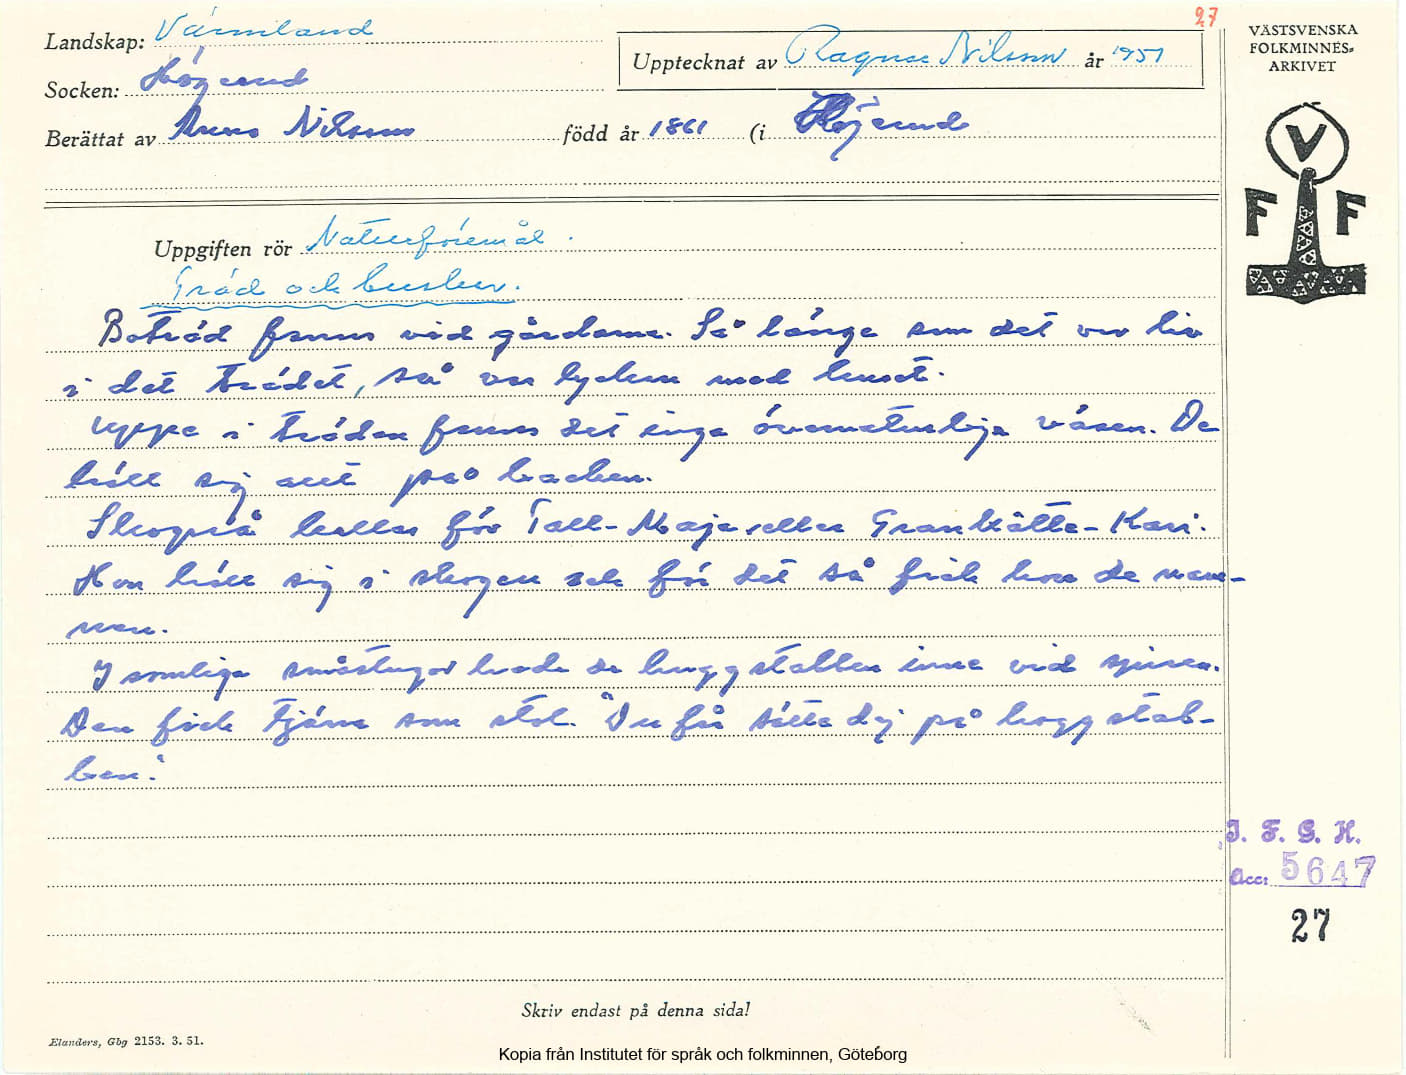 27
Landskap: Värmland
Socken: Högerud
Upptecknat av Ragnar Nilsson år 1951
Berättat av Anna Nilsson född år 1861 (i Högerud
VÄSTSVENSKA
FOLKMINNES-
ARKIVET
V
F F
Uppgiften rör Naturföremål.
Träd och buskar.
Boträd fanns vid gårdarna. Så länge som det var liv
i det trädet, så var lyckan med huset.
Uppe i träden fanns det inga övernaturliga väsen. De
höll sig allt på backen.
Skogsrå kallas för Tall-Maja eller Grankåtte-Kari.
Hon höll sig i skogen och för det så fick hon de nam-
nen.
I somliga småstugor hade de huggstabben inne vid spisen.
Den fick tjäna som stol. "Du få sätta dej på hoggstab-
ben."
I. F. G. H.
Acc: 5647
27
Skriv endast på denna sida!
Elanders, Gbg 2153. 3. 51.
Kopia från Institutet för språk och folkminnen, Göteborg